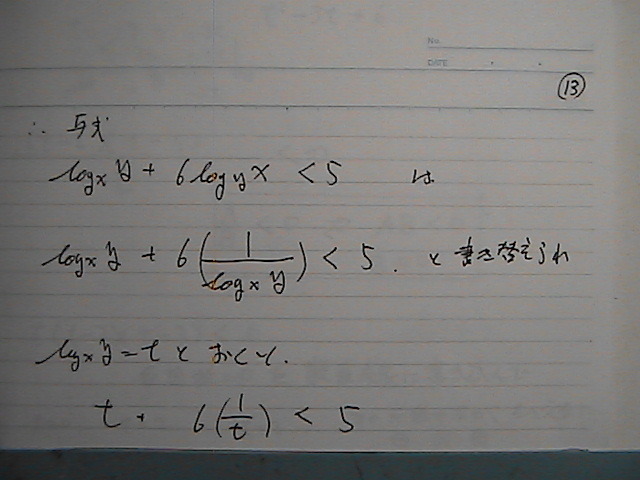 No.
DATE
⑬
∴ 与式
log_x y + 6 log_y x < 5 は
log_x y + 6(1/(log_x y)) < 5. と書き替えられ
log_x y = t とおくと.
t + 6(1/t) < 5